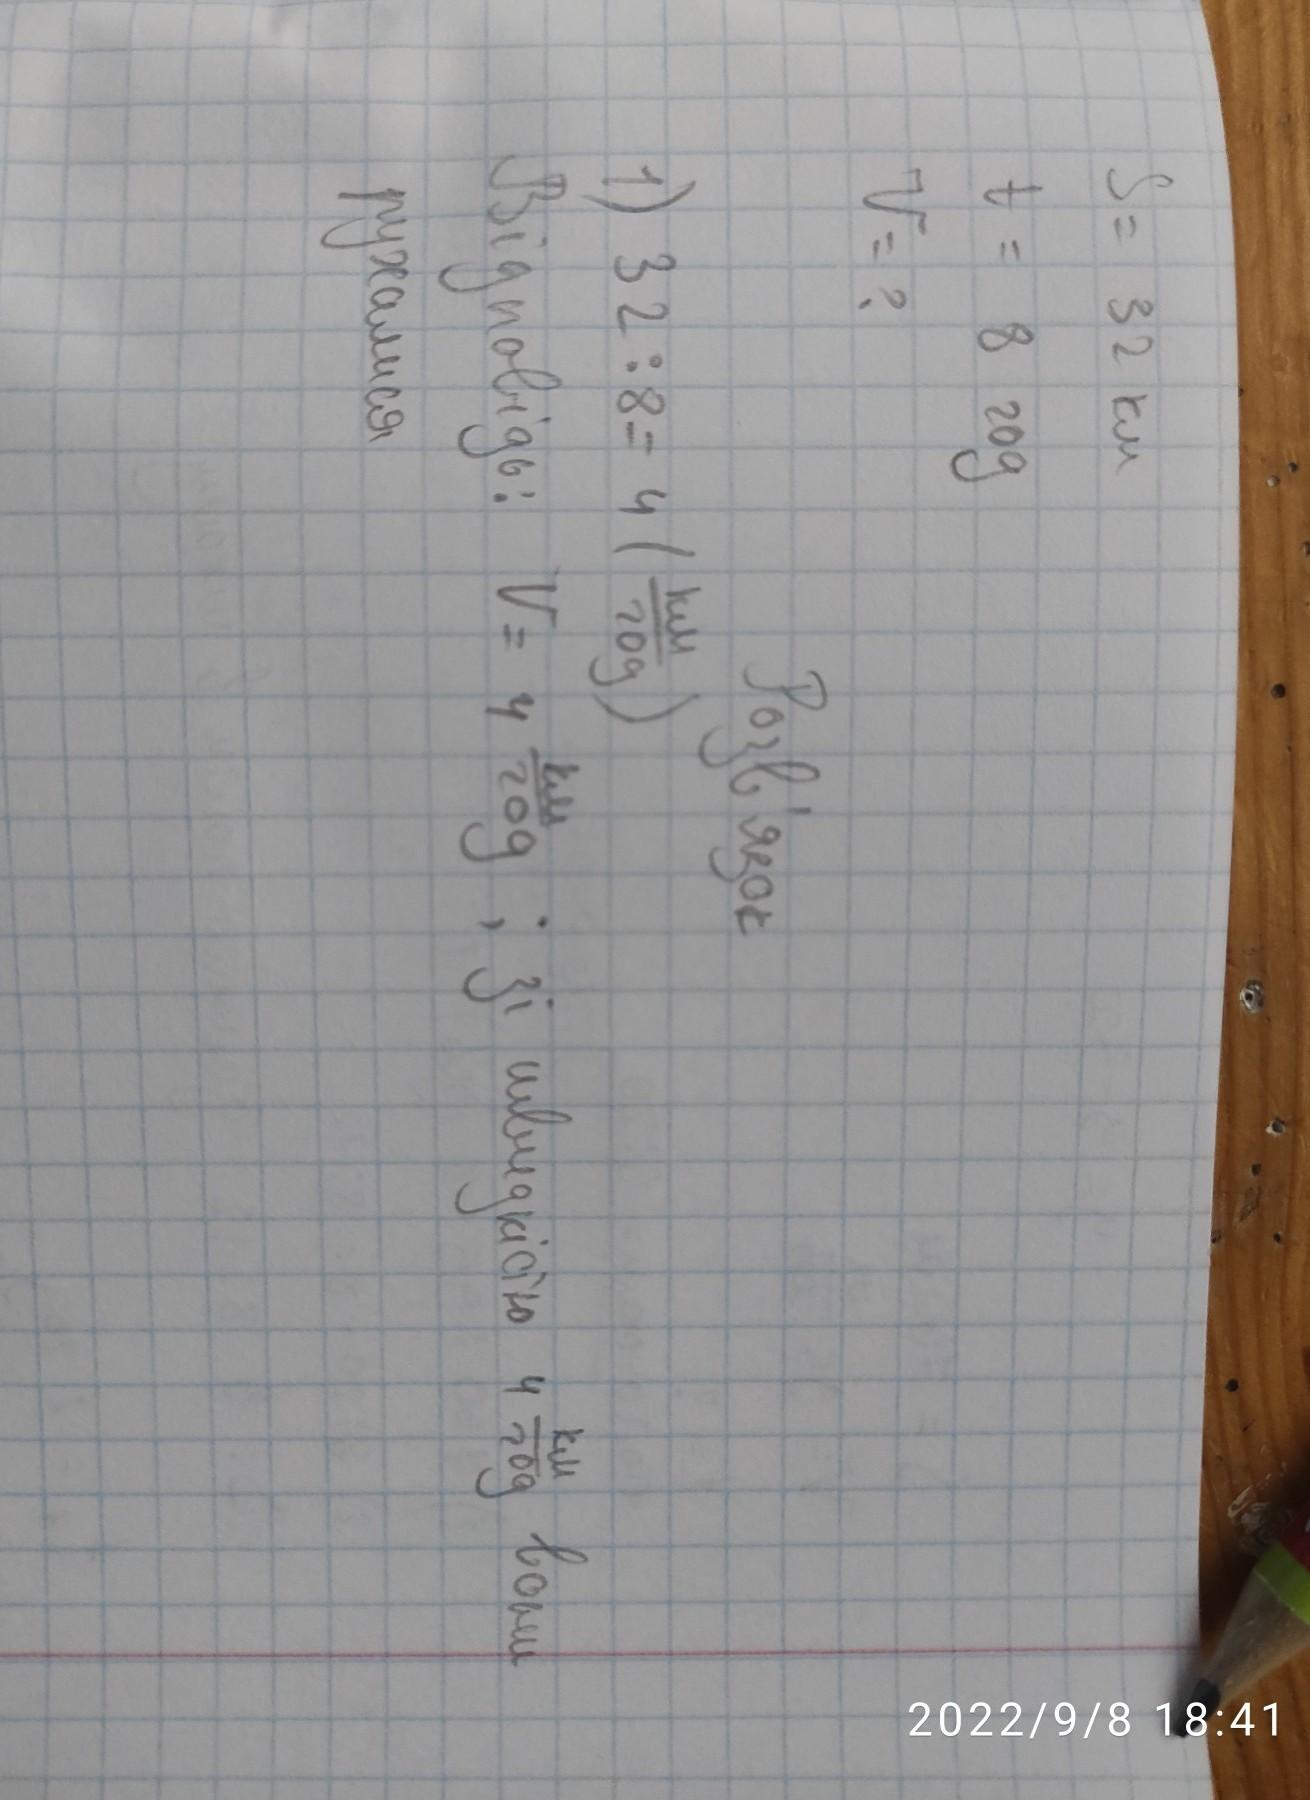 S = 32 км
t = 8 год
V = ?
Розв'язок
1) 32 : 8 = 4 (км/год)
Відповідь: V = 4 км/год ; зі швидкістю 4 км/год вони
рухалися
2022/9/8 18:41